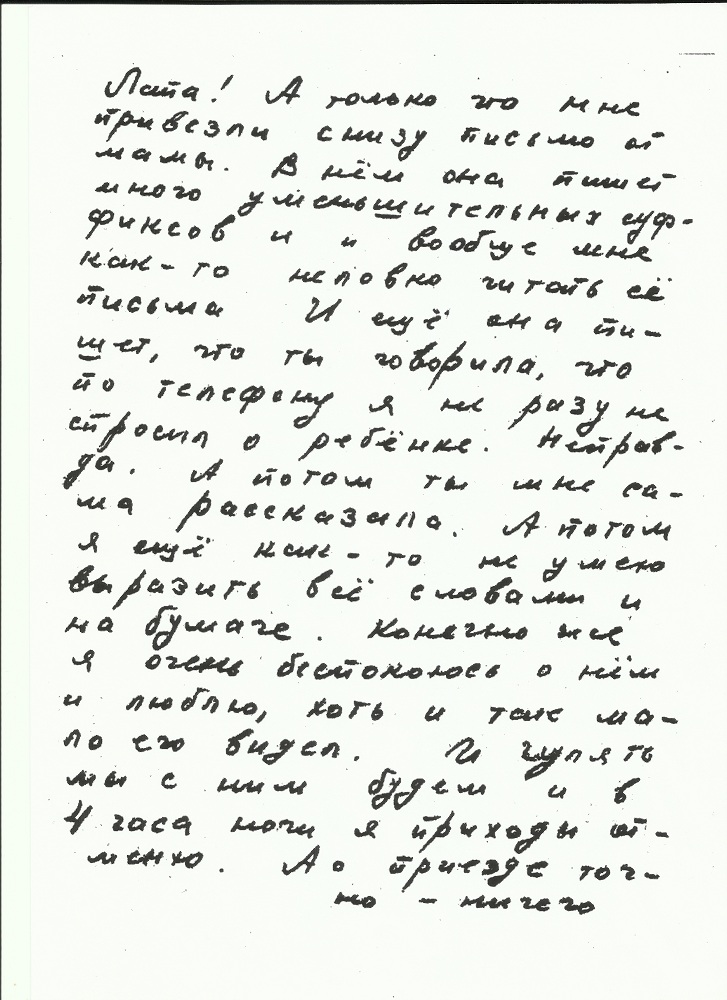 Лата! А только что мне
привезли снизу письмо от
мамы. В нём она пишет
много уменьшительных суф-
фиксов и и вообще мне
как-то неловко читать её
письма И ещё она пи-
шет, что ты говорила, что
по телефону я не разу не
спросил о ребёнке. Неправ-
да. А потом ты мне са-
ма рассказала. А потом
я ещё как-то не умею
выразить всё словами и
на бумаге. Конечно же
я очень беспокоюсь о нём
и люблю, хоть и так ма-
ло его видел. И гулять
мы с ним будем и в
4 часа ночи я приходы от-
меняю. А о приезде точ-
но - ничего